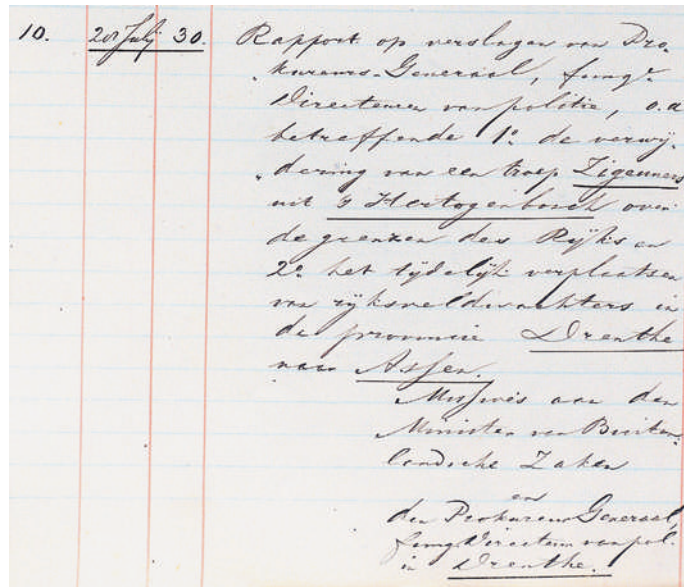 10. 20 Julij 30. Rapport op verslagen van Pro-
„kureurs-Generaal, fungr
Directeuren van politie, o.a
betreffende 1o. de verwij-
„dering van een troep Zigeuners
uit 's Hertogenbosch over
de grenzen des Rijks en
2o. het tijdelijk verplaatsen
van rijksveldwachters in
de provincie Drenthe
naar Assen.
Missives aan den
Minister van Buiten-
landsche Zaken
en
den Prokureur Generaal,
fungr Directeur van pol.
in Drenthe.